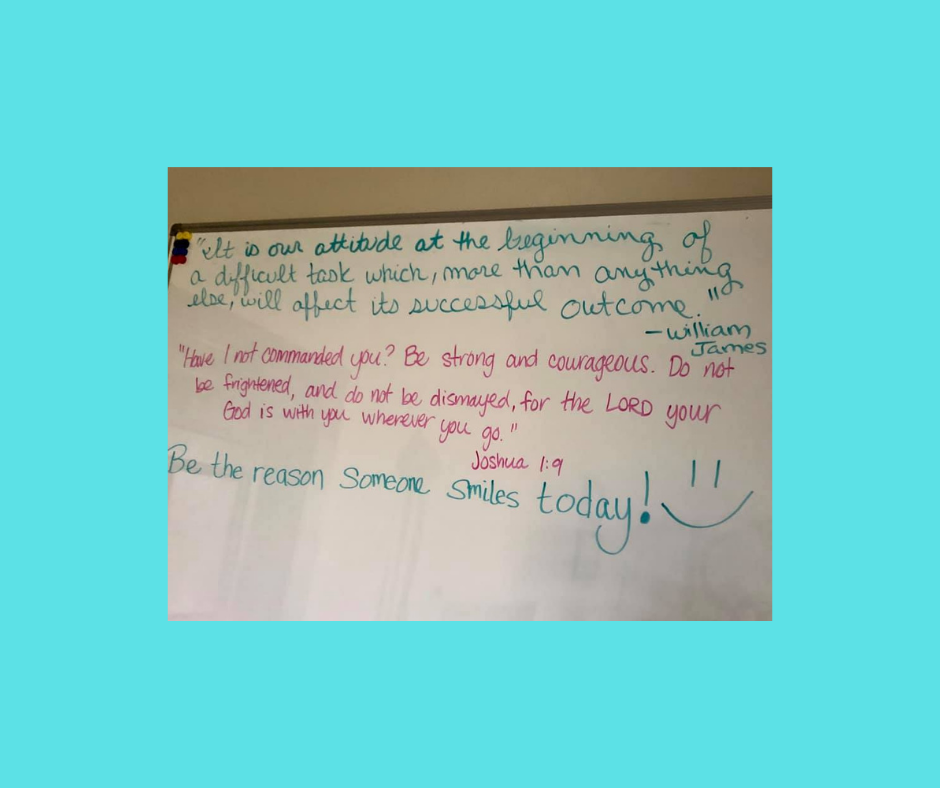 "It is our attitude at the beginning of
a difficult task which, more than anything
else, will affect its successful outcome."
-William
James
"Have I not commanded you? Be strong and courageous. Do not
be frightened, and do not be dismayed, for the LORD your
God is with you wherever you go."
Joshua 1:9
Be the reason Someone Smiles today!